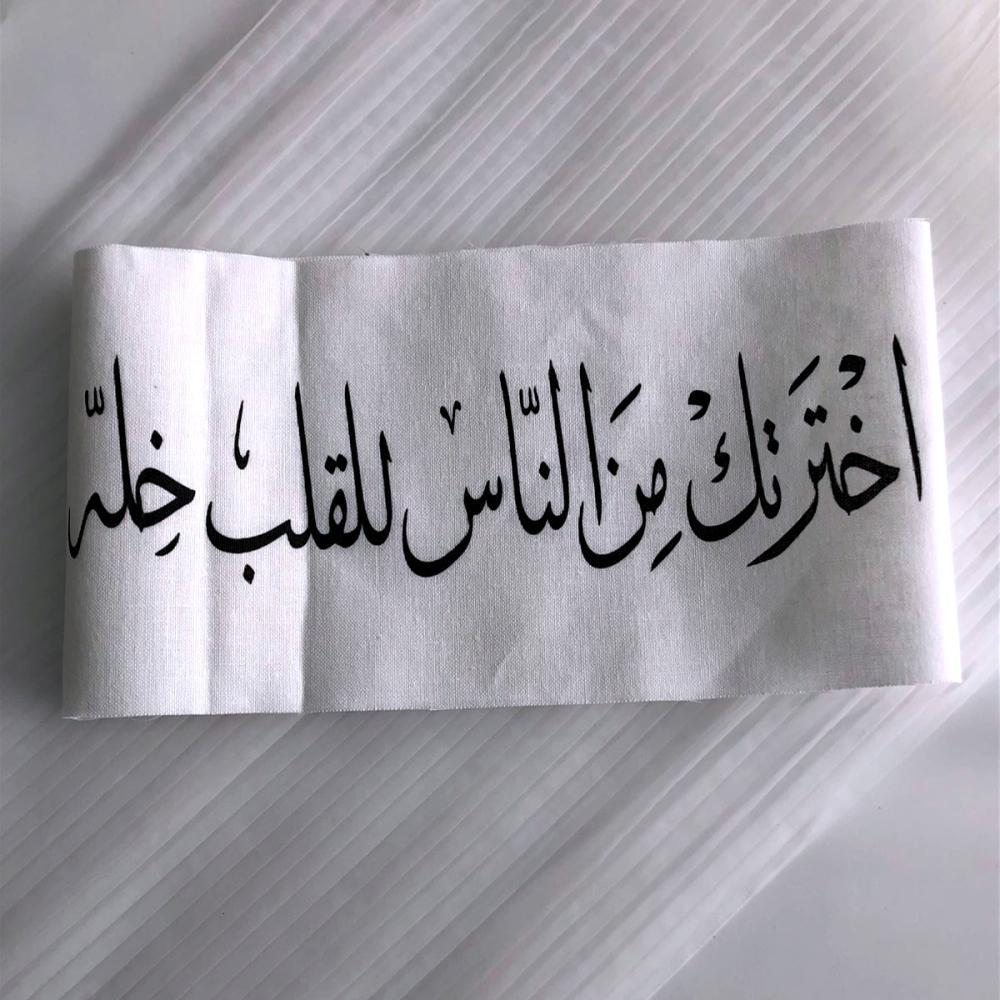 اخْتَرتكْ مِنَ النّاس للقلب خِلّه